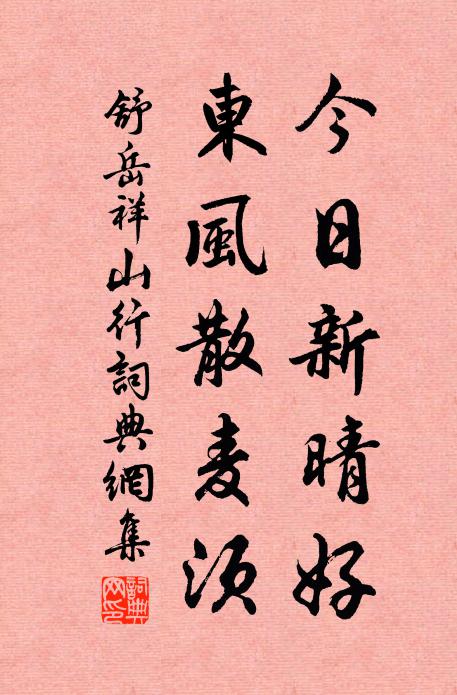 今日新晴好
東風散麦須
舒岳祥山行詞典網集
詞典网印